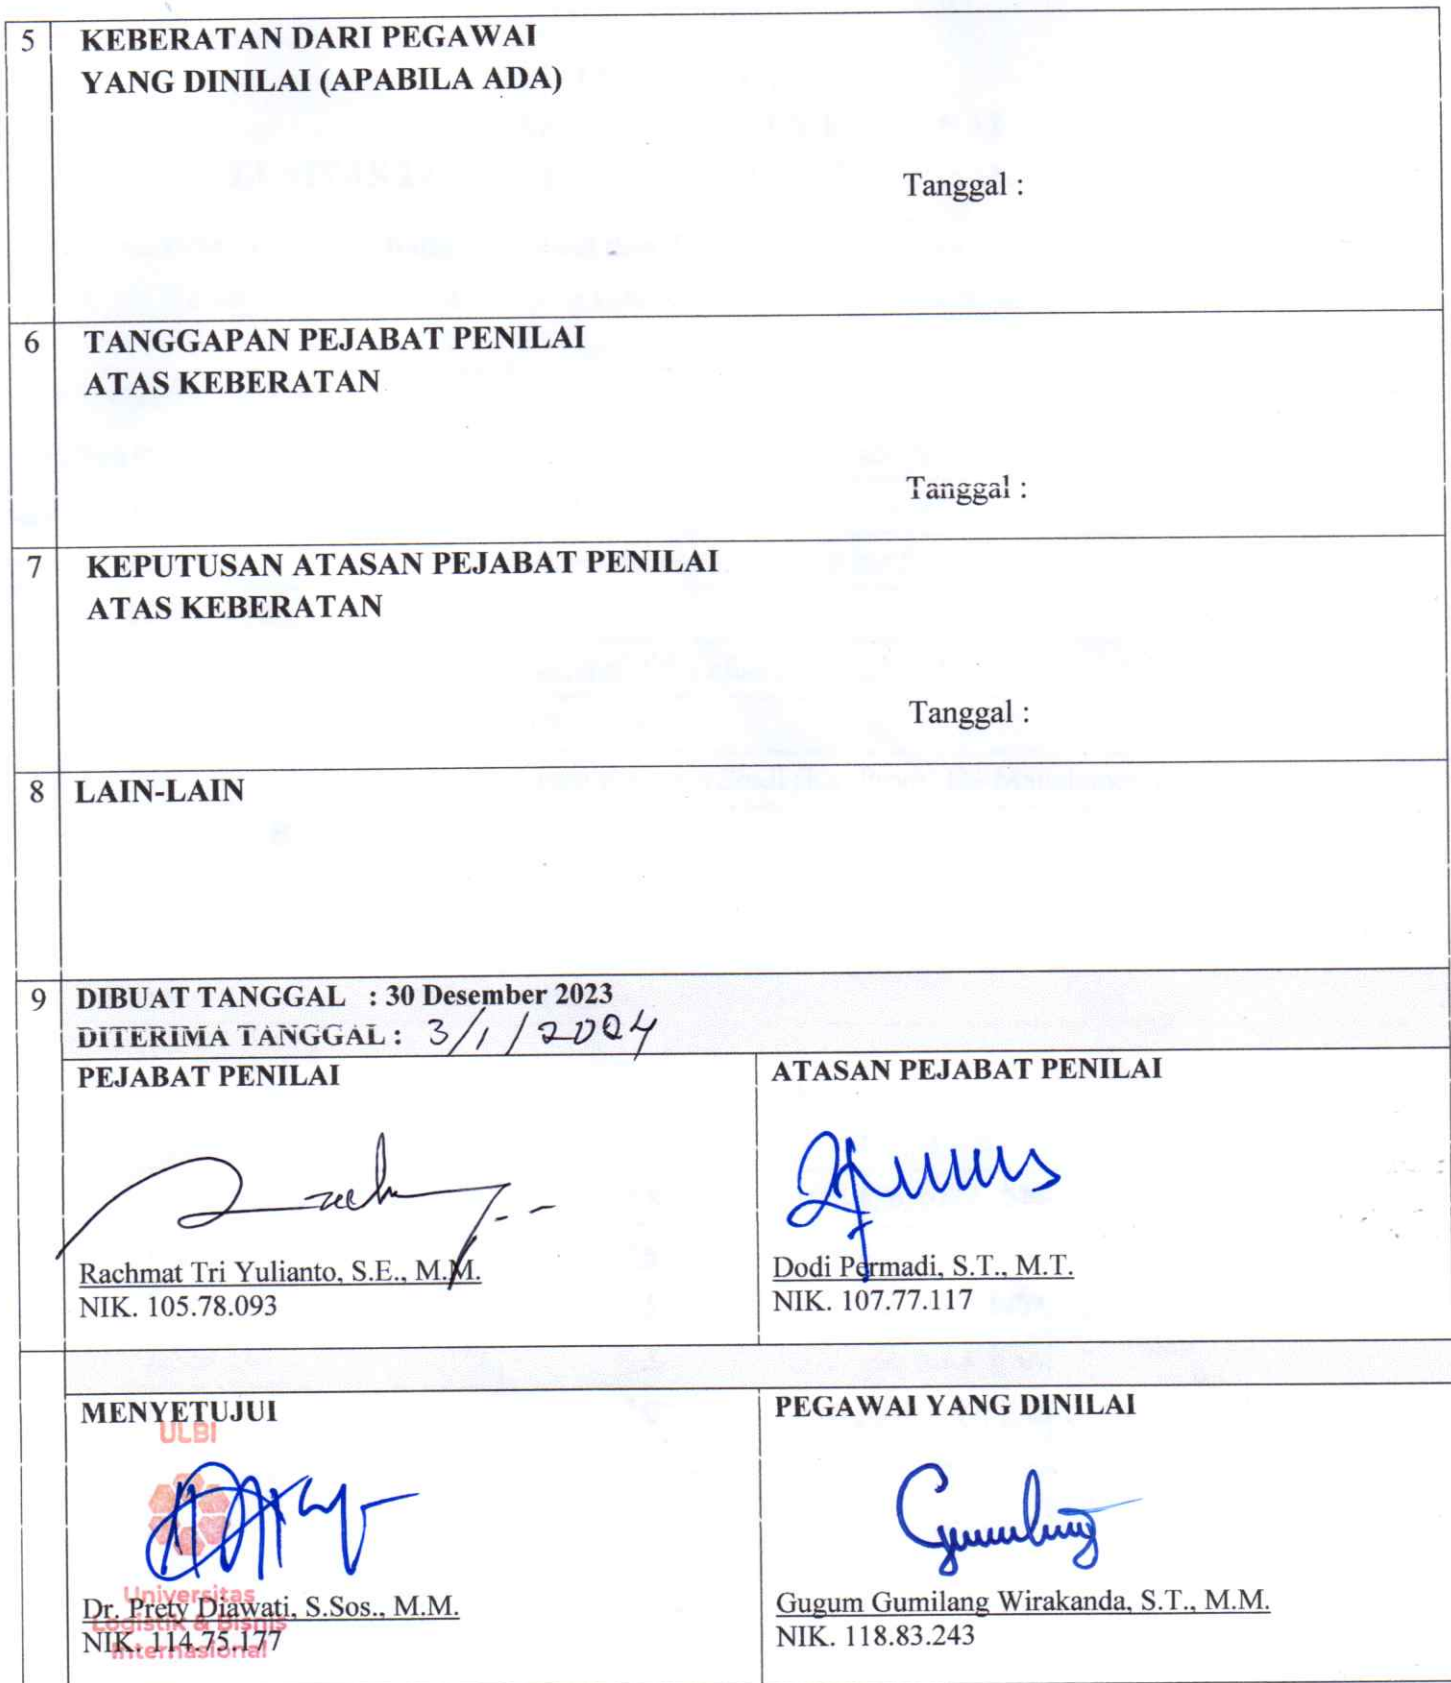 5 KEBERATAN DARI PEGAWAI
YANG DINILAI (APABILA ADA)
Tanggal :
6 TANGGAPAN PEJABAT PENILAI
ATAS KEBERATAN
Tanggal :
7 KEPUTUSAN ATASAN PEJABAT PENILAI
ATAS KEBERATAN
Tanggal :
8 LAIN-LAIN
9 DIBUAT TANGGAL : 30 Desember 2023
DITERIMA TANGGAL : 3/1/2024
PEJABAT PENILAI
Rachmat Tri Yulianto, S.E., M.M.
NIK. 105.78.093
ATASAN PEJABAT PENILAI
Dodi Permadi, S.T., M.T.
NIK. 107.77.117
MENYETUJUI
ULBI
Universitas
Logistik & Bisnis
Internasional
Dr. Prety Diawati, S.Sos., M.M.
NIK. 114.75.177
PEGAWAI YANG DINILAI
Gugum Gumilang Wirakanda, S.T., M.M.
NIK. 118.83.243